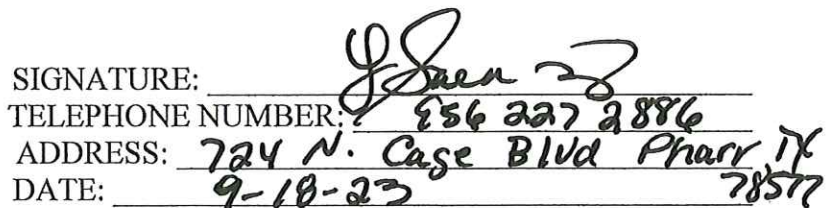 SIGNATURE: Y Saenz
TELEPHONE NUMBER: 956 227 2886
ADDRESS: 724 N. Cage Blvd Pharr, TX
DATE: 9-18-23 78577